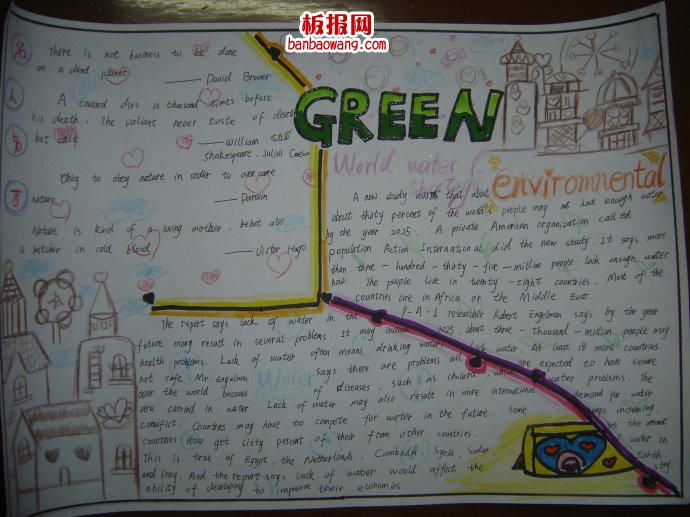 板报网
banbaowang.com
名
人
名
言
There is not business to be done
on a dead planet
—— David Brower
A coward dies a thousand times before
his death. The valiant never taste of death
but once
—— William
Shakespeare, Julius Caesar
Obly to obey nature in order to overcome
nature
—— Darwin
Nature is kind of a loving mother, be but also
a butcher in cold blood
—— Victor Hugo
GREEN
World water
shortage
enviromnental
A new study warns that about
about thirty percent of the world people may not have enough water
by the year 2025. A private American organization called
population Action International did the new study. It says more
than three-hundred-thirty-five-million people lack enough water
now. The people live in twenty-eight countries. Most of the
countries are in Africa or the Middle East.
P-A-I researcher Robert Engelman says by the year
2025, about three-thousand-million people may
lack water. At least 18 more countries
are expected to have severe
water problems. The
demand for water
keeps increasing.
the amount
water on
Earth
stay
The report says lack of water in the
future may result in several problems. It may
health problems. Lack of water often means drinking water
not safe. Mr. Engelman says there are problems all
over the world because of diseases, such as cholera, which
are carried in water. Lack of water may also result in more international
conflict. Countries may have to compete for water in the future. Some
countries now get sixty percent of their from other countries.
This is true of Egypt, the Netherlands, Cambodia, Syria, Sudan,
and Iraq. And the report says Lack of water would affect the
ability of developing to improve their economies.
Water